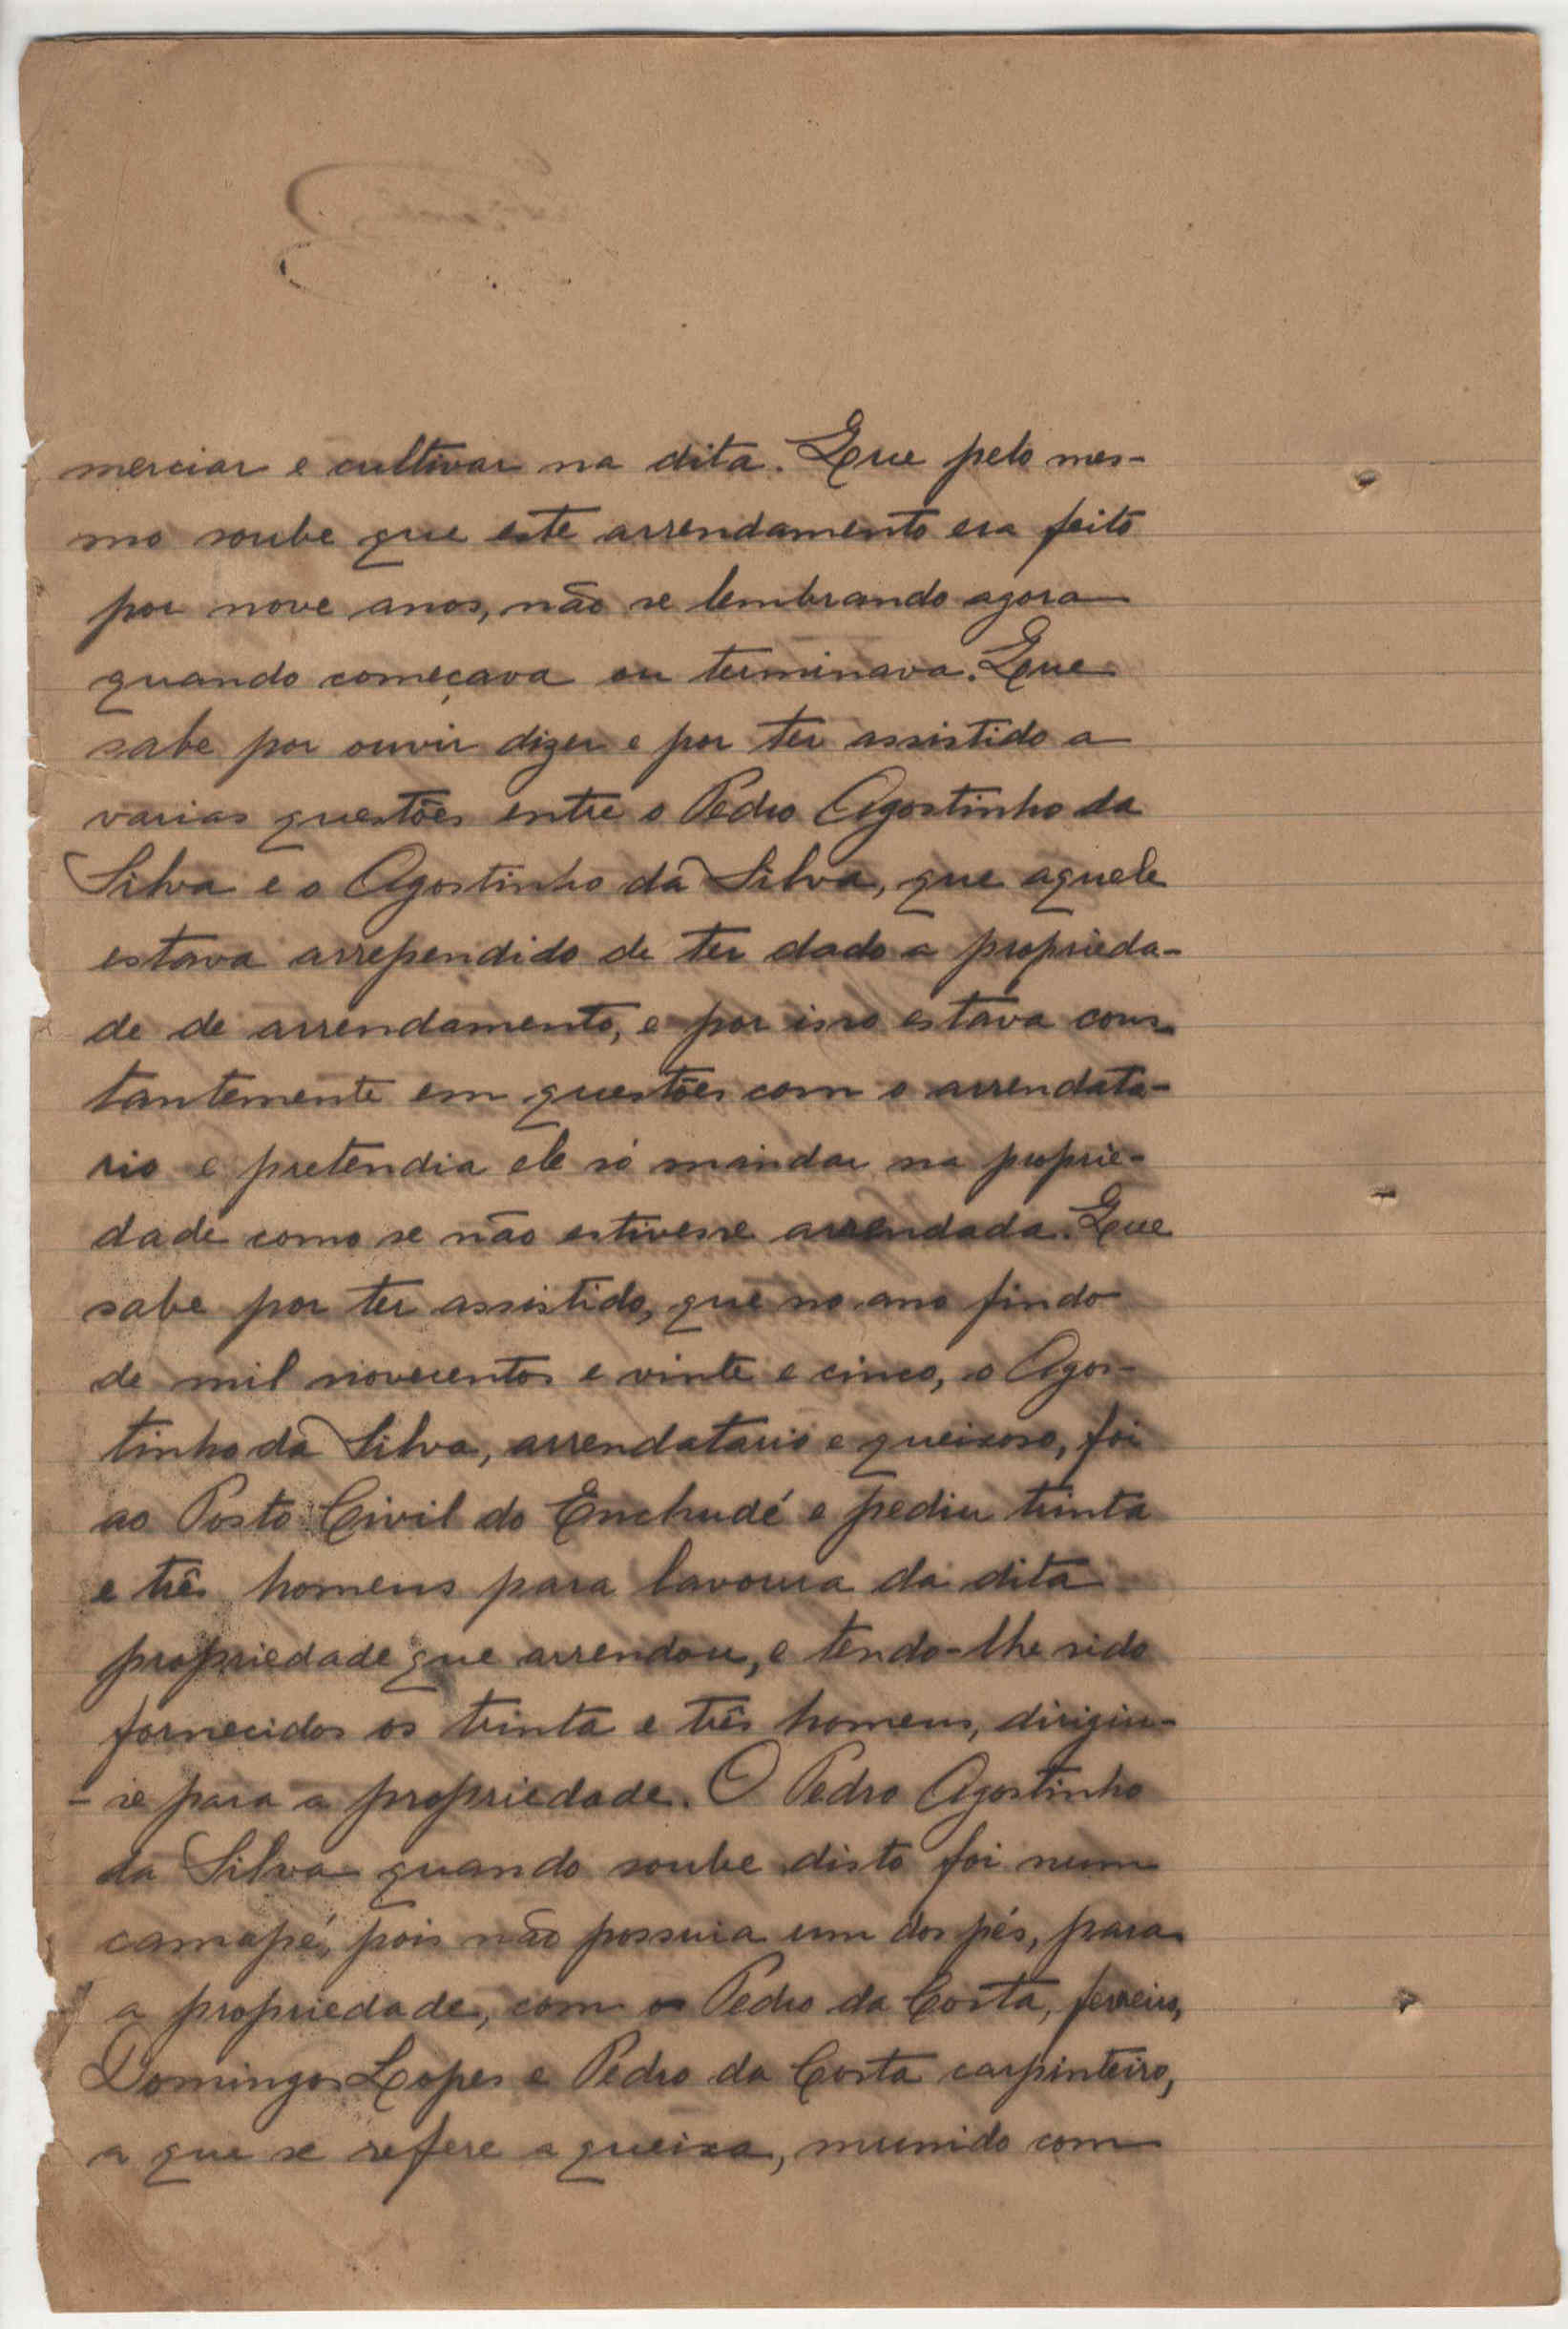 merciar e cultivar na dita. Que pelo mes-
mo soube que este arrendamento era feito
por nove anos, não se lembrando agora
quando começava ou terminava. Que
sabe por ouvir dizer e por ter assistido a
varias questões entre o Pedro Agostinho da
Silva e o Agostinho da Silva, que aquele
estava arrependido de ter dado a proprieda-
de de arrendamento, e por isso estava cons-
tantemente em questões com o arrendata-
rio e pretendia ele só mandar na proprie-
dade como se não estivesse arrendada. Que
sabe por ter assistido, que no ano findo
de mil novecentos e vinte e cinco, o Agos-
tinho da Silva, arrendatario e queixoso, foi
ao Posto Civil do Enchudé e pediu trinta
e três homens para lavoura da dita
propriedade que arrendou, e tendo-lhe sido
fornecidos os trinta e três homens, dirigiu-
-se para a propriedade. O Pedro Agostinho
da Silva quando soube disto foi num
camapé, pois não possuia um dos pés, para
a propriedade, com o Pedro da Costa, ferreiro,
Domingos Lopes e Pedro da Costa carpinteiro,
a que se refere a queixa, munido com